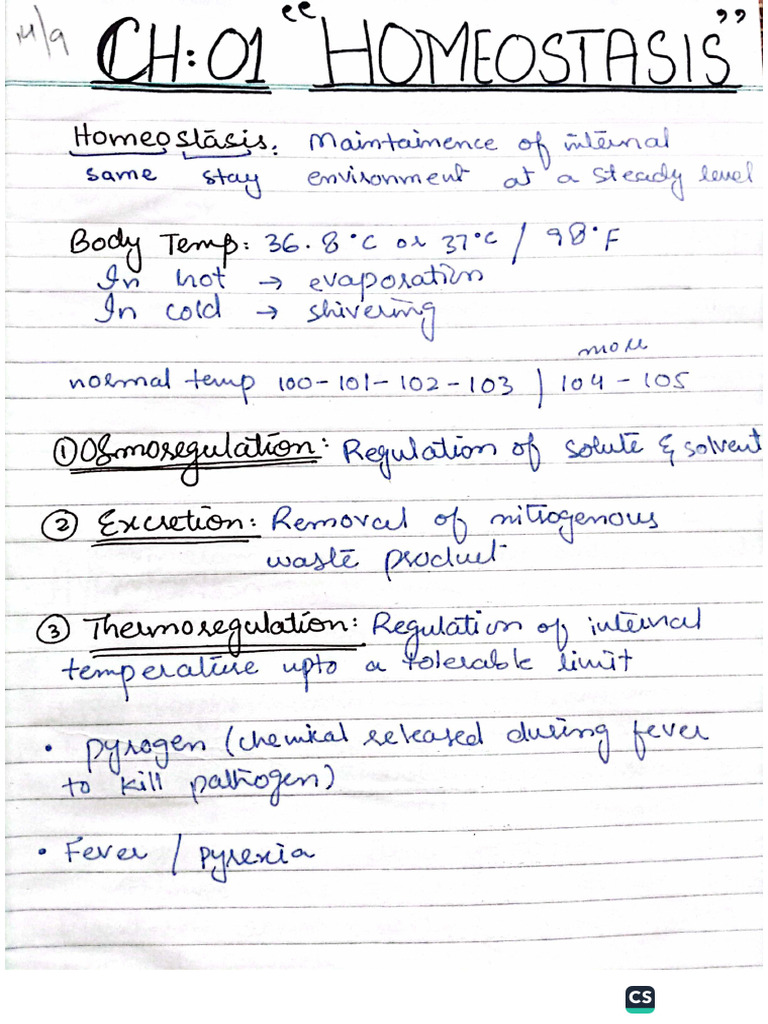 14/9
CH:01 "HOMEOSTASIS"
Homeostasis: Maintainence of internal
same stay environment at a steady level
Body Temp: 36.8°C or 37°C / 98°F
In hot → evaporation
In cold → shivering
more
normal temp 100-101-102-103 | 104-105
① Osmoregulation: Regulation of solute & solvent
② Excretion: Removal of nitrogenous
waste product
③ Thermoregulation: Regulation of internal
temperature upto a tolerable limit
• Pyrogen (chemical released during fever
to kill pathogen)
• Fever / pyrexia
CS